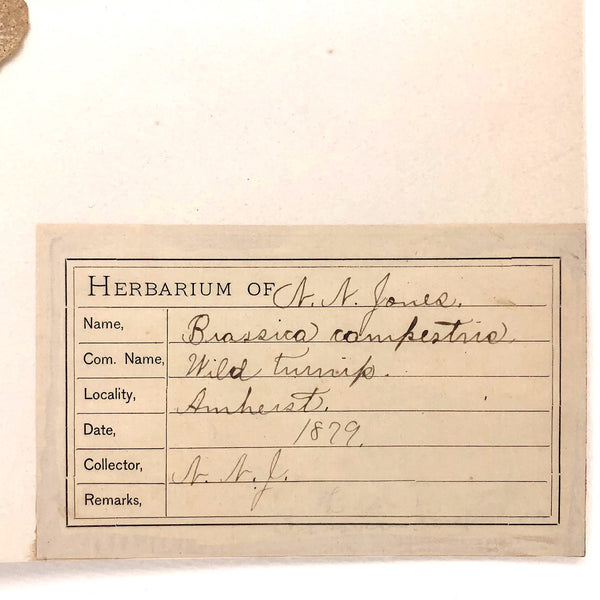 Herbarium of N. N. Jones.
Name, Brassica campestris
Com. Name, Wild turnip.
Locality, Amherst.
Date, 1879.
Collector, N. N. J.
Remarks,